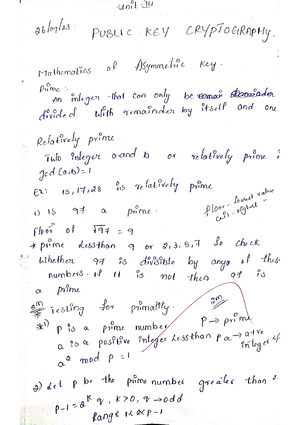 Unit - III
26/09/23
PUBLIC KEY CRYPTOGRAPHY.
Mathematics of Asymmetric key.
Prime :
An integer that can only be
divided with remainder by itself and one
Relatively prime.
Two integer a and b or relatively prime
gcd (a,b)=1.
Ex: 15,17,28 is relatively prime
1) Is 97 a prime.
floor - lowest value
ceil - highest "
Floor of √97 = 9
* prime less than 9 or 2,3,5,7 so check
whether 97 is divisible by any of these
numbers. if it is not then 97 is
a prime
2m
Testing for primality.
2m
*1) P is a prime number
P → prime
a is a positive integer less than p
a → +ve
integer <p
a² mod p = 1
2) Let p be the prime number greater than
P-1 = 2ᵏ q, k>0, q → odd
Range 1<a<p-1